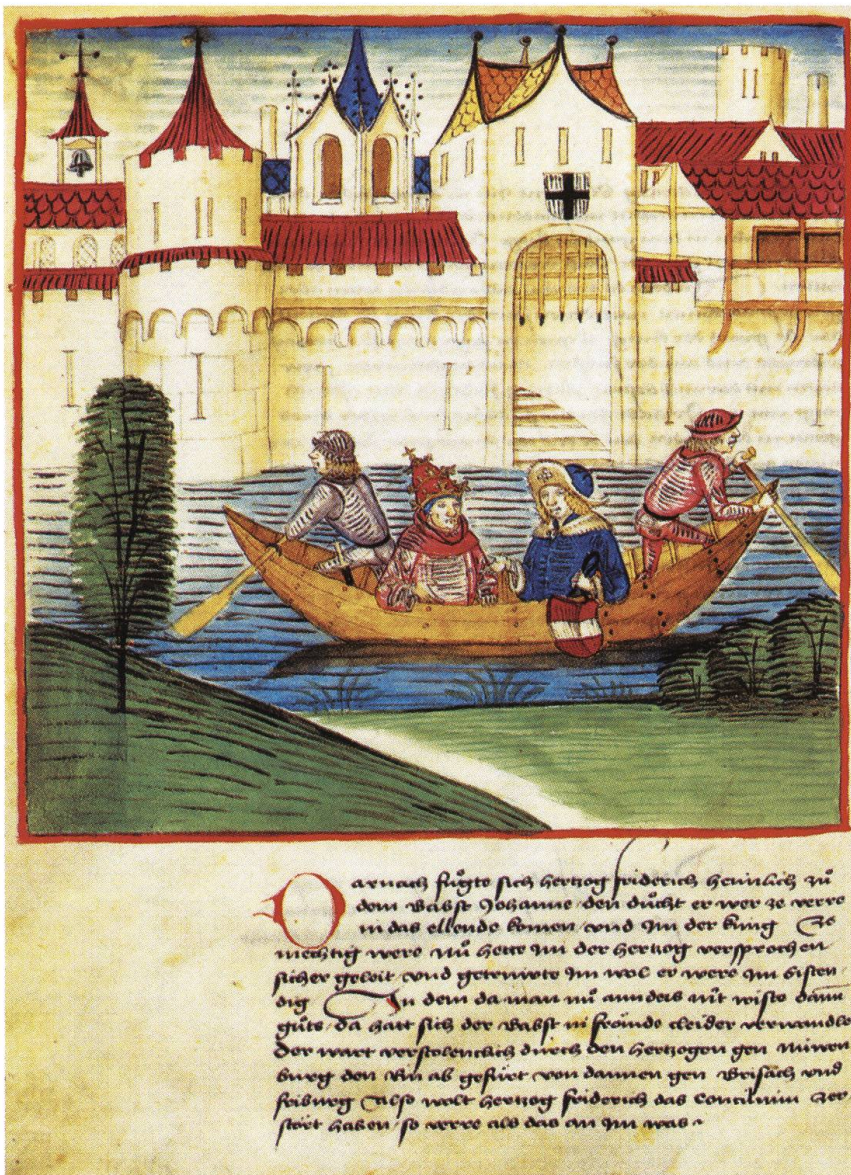 Darnach fůgte sich hertzog friderich heimlich zů
dem Babst Johanne den důcht er wer ze verre
in das ellende komen vnd Im der king ze
mechtig were nů hette Im der hertzog versprochen
sicher geleit vnd getruwte Im wol er were Im bisten
dig In dem da man nů annders nit wiste dann
gůts da hatt sich der Babst in frömde cleider verwandlo
Der wart verstolenclich durch den hertzogen gen Nuwen
burg den Rin ab gefürt von dannen gen Brisach vnd
friburg Also wolt hertzog friderich das Concilium zer
stört haben so verre als das an Im was